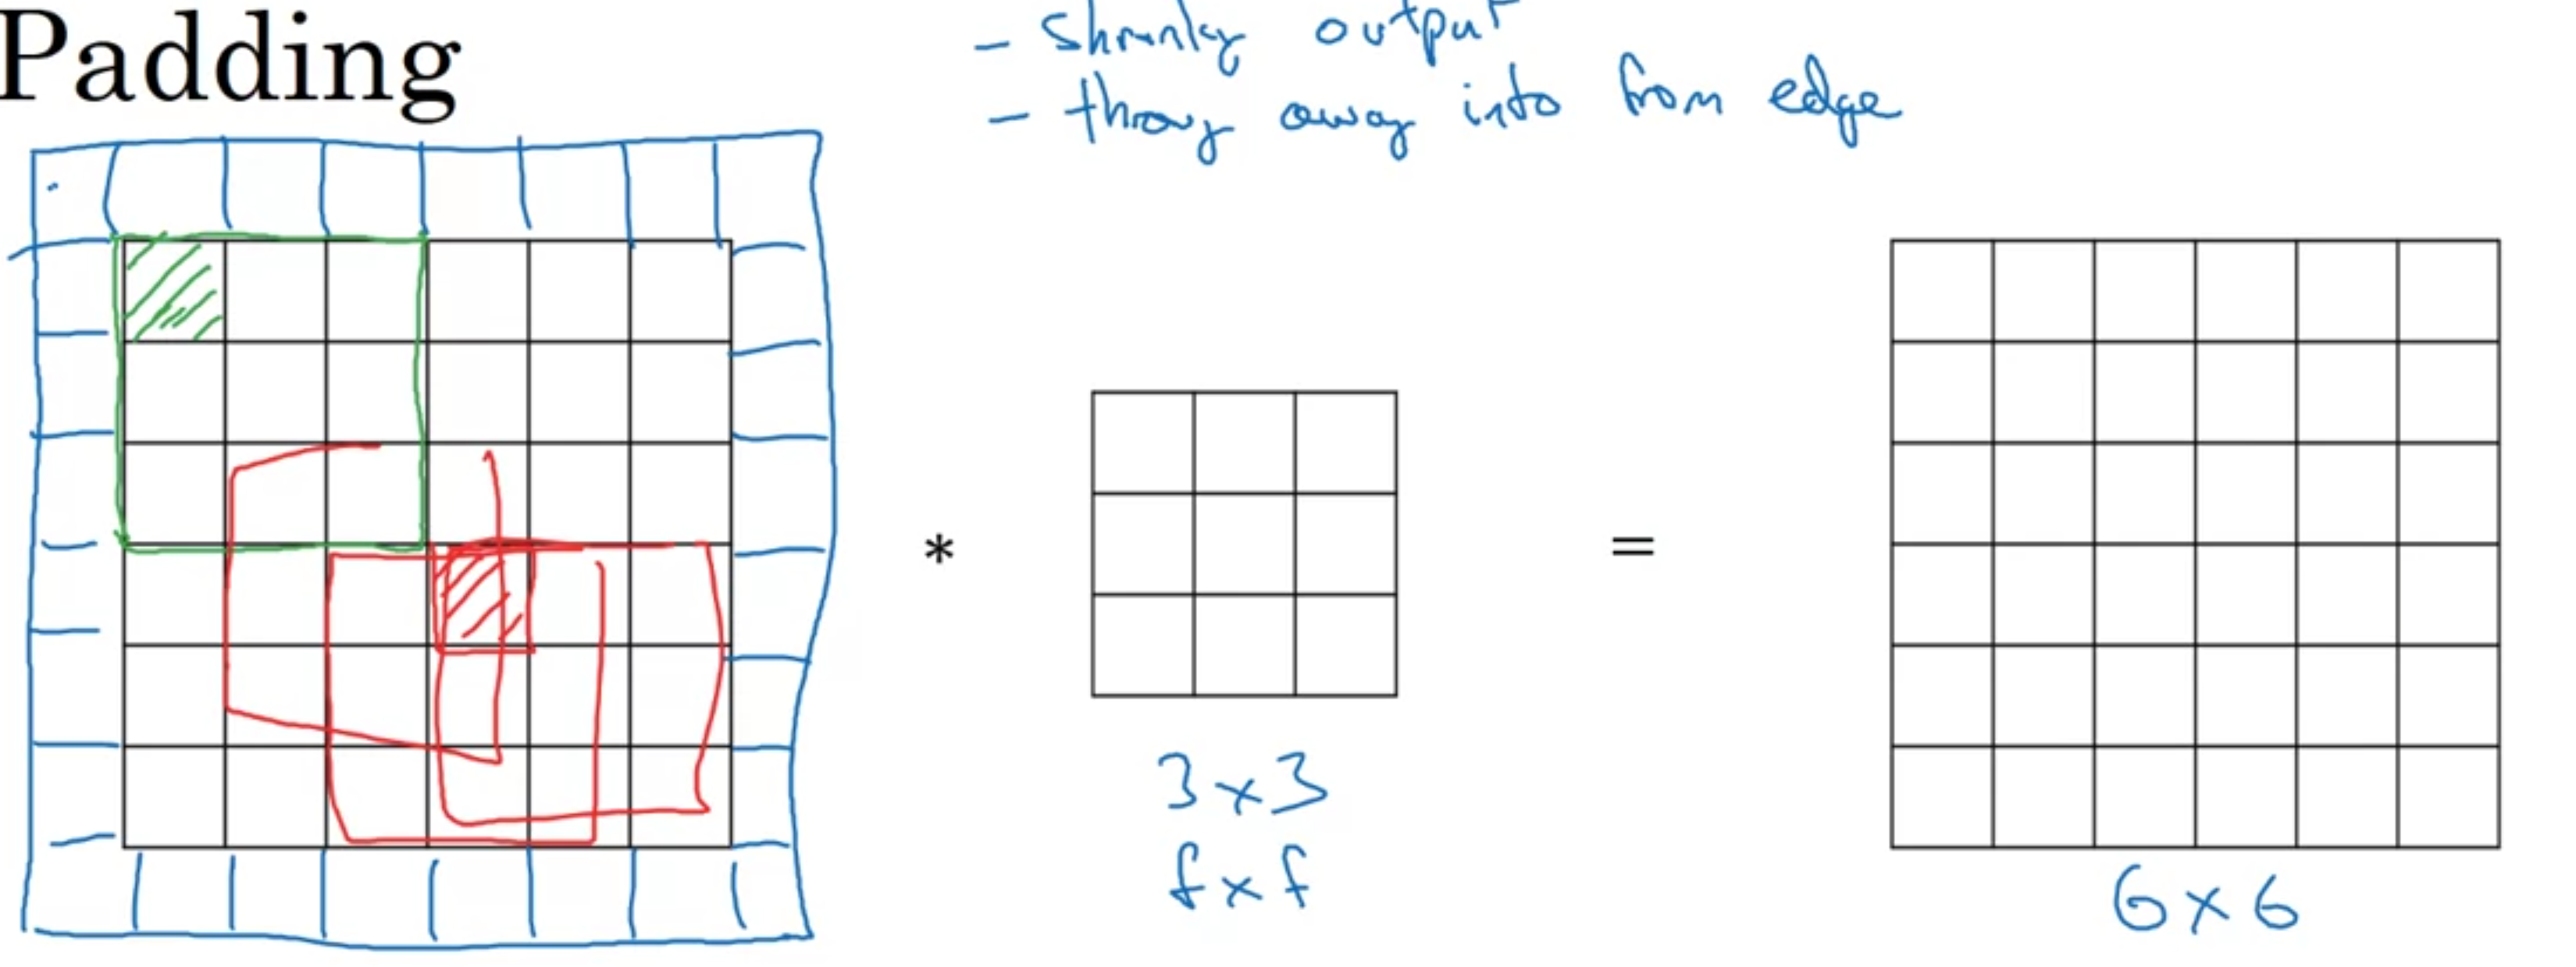 Padding
- shrinky output
- throwy away info from edge
*
=
3x3
fxf
6x6